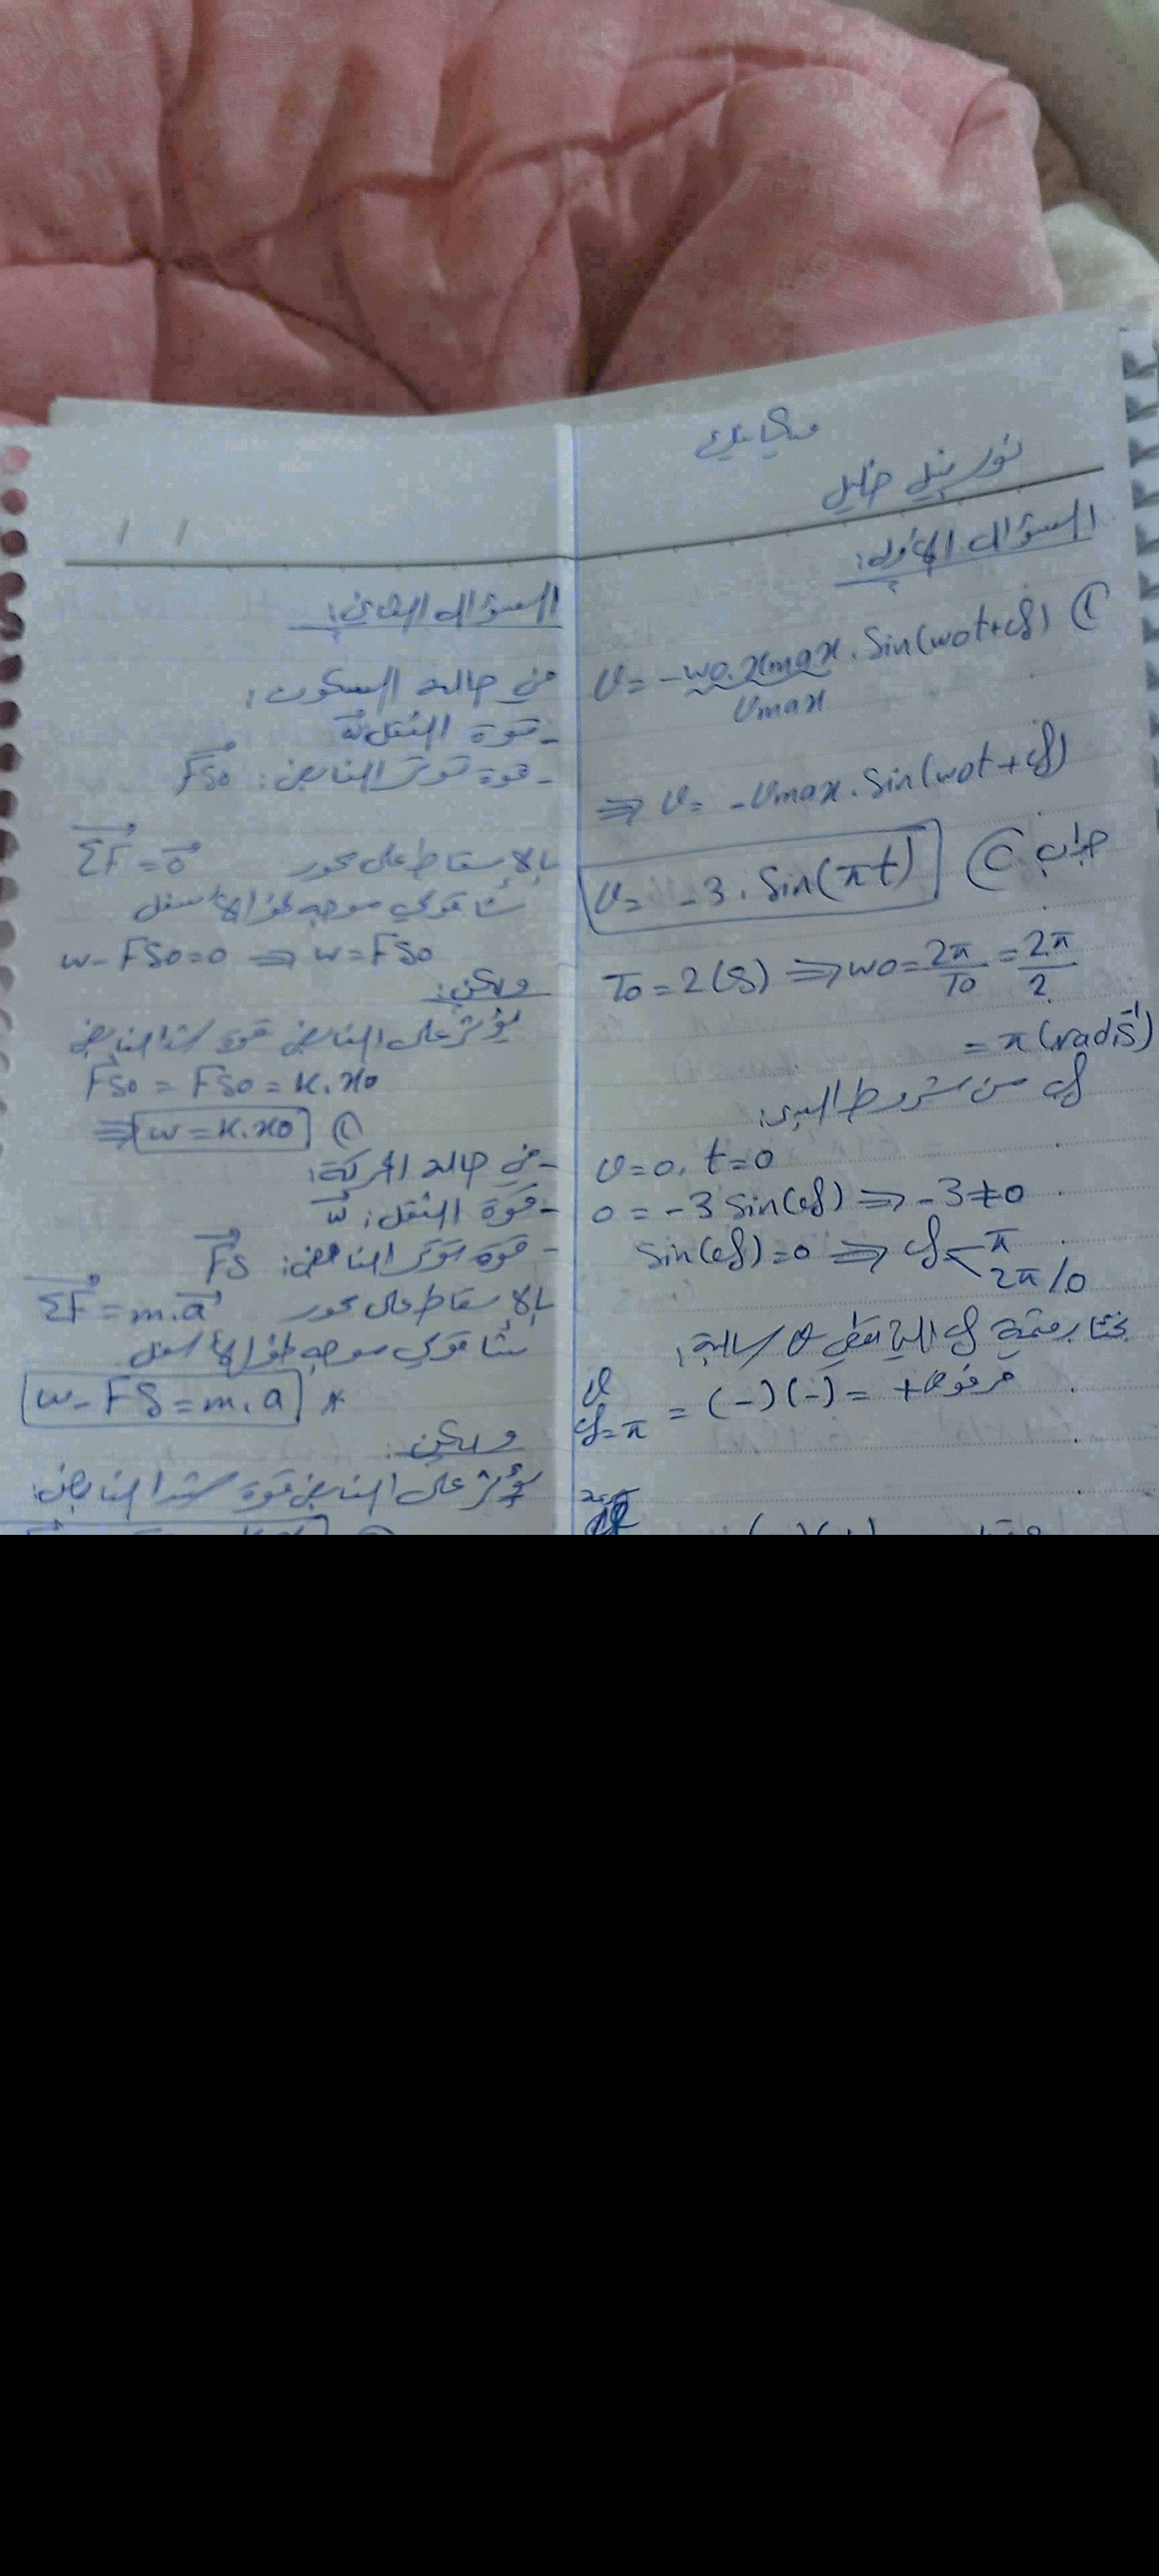 ميكانيك
نور نبيل خليل
السؤال الأول:
v = -ωo.xmax . Sin(ωot+φ) (1
vmax
⇒ v = -vmax . Sin(ωot+φ)
v = -3 . Sin(πt) جواب C)
To = 2(S) ⇒ ωo = 2π/To = 2π/2
= π(rad.s⁻¹)
φ من شروط البدء:
v=0, t=0
0 = -3 Sin(φ) ⇒ -3≠0
Sin(φ)=0 ⇒ φ < π
2π/0
نختار قيمة φ التي تعطي v سالبة:
v φ=π = (-)(-) = + مرفوض
السؤال الثاني:
في حالة السكون:
- قوة الثقل w
- قوة توتر النابض: FSo
ΣF = o بالإسقاط على محور
شاقولي موجه نحو الأسفل
w - FSo = o ⇒ w = FSo
ولكن:
يؤثر على النابض قوة شد النابض
F'So = FSo = K.xo
⇒ w = K.xo (1
- في حالة الحركة:
- قوة الثقل: w
- قوة توتر النابض: FS
ΣF = m.a بالإسقاط على محور
شاقولي موجه نحو الأسفل
w - FS = m.a *
ولكن:
يؤثر على النابض قوة شد النابض: